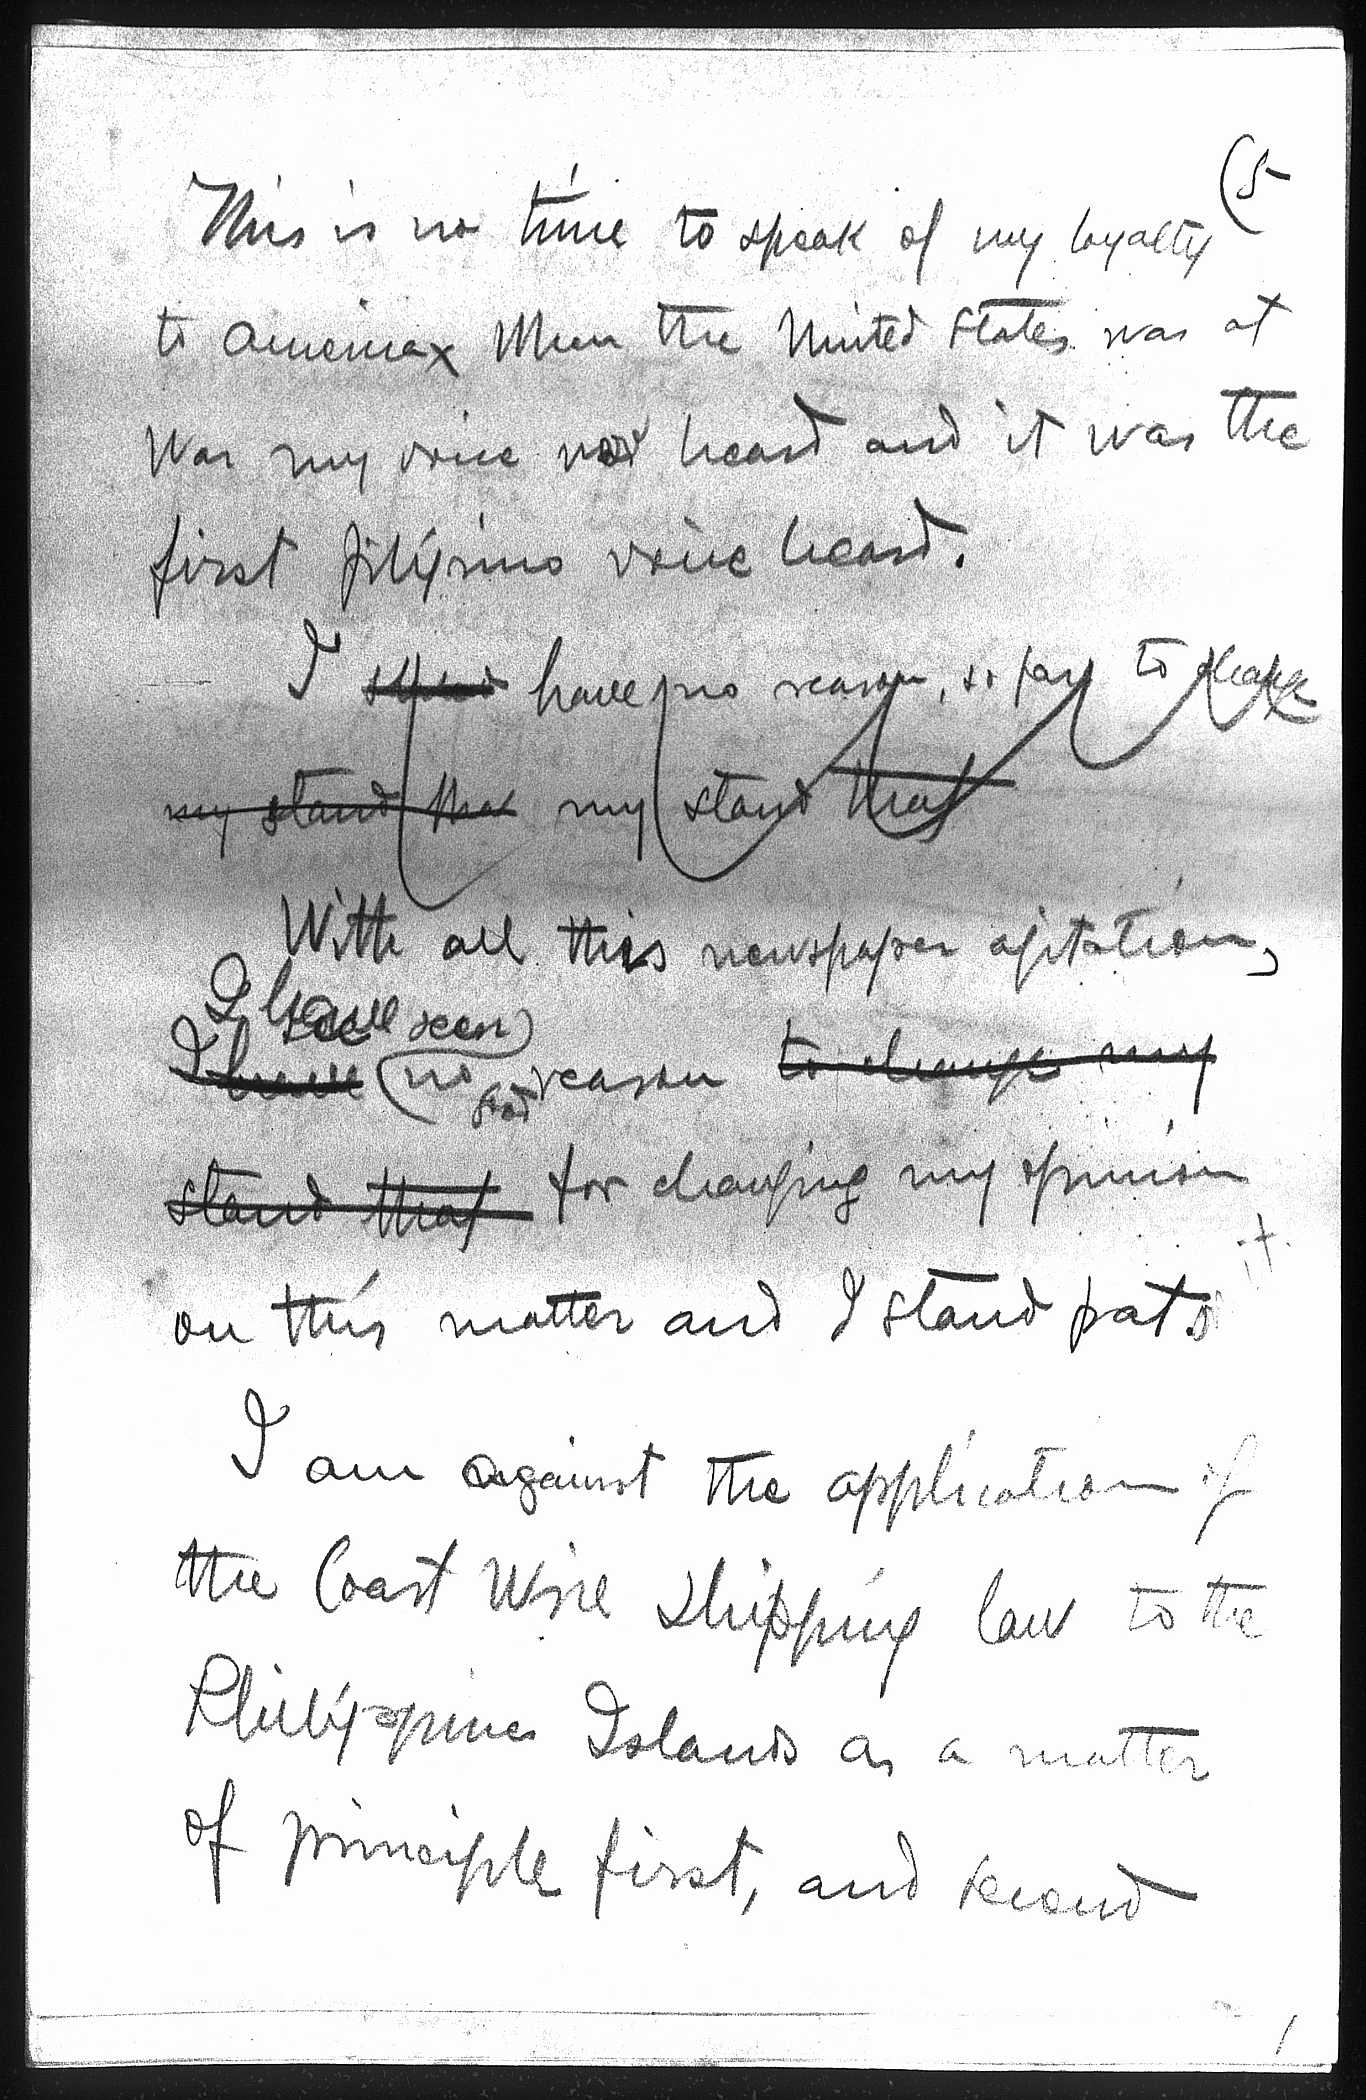 (5
This is no time to speak of my loyalty
to America x When the United States was at
War my voice was heard and it was the
first filipino voice heard.
I stand have no reason, so far to change
my stand that my stand that
With all this newspaper agitation,
I have seen
I have (no reason to change my
stand that for changing my opinion
on this matter and I stand pat.
I am against the application of
the Coast Wise Shipping law to the
Philippines Islands as a matter
of principle first, and second
1